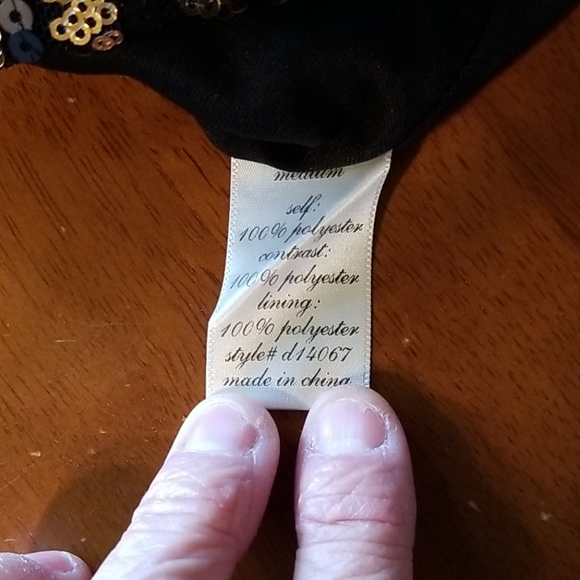 medium
self:
100% polyester
contrast:
100% polyester
lining:
100% polyester
style# d14067
made in china